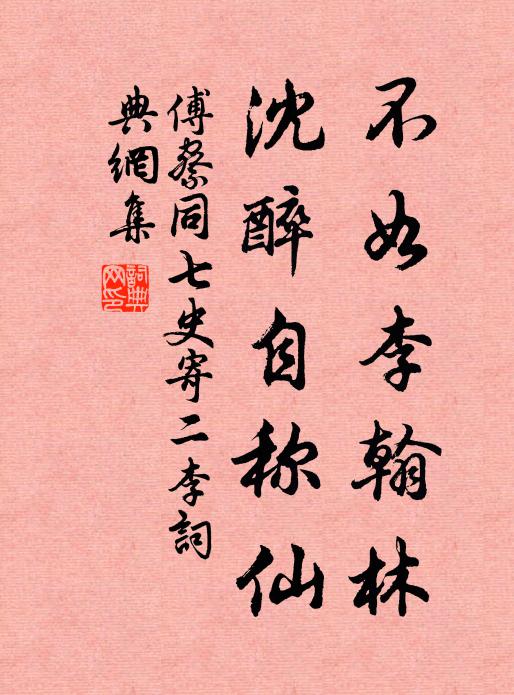 不如李翰林
沈醉自称仙
傅察同七史寄二李詞
典網集
詞典
网印